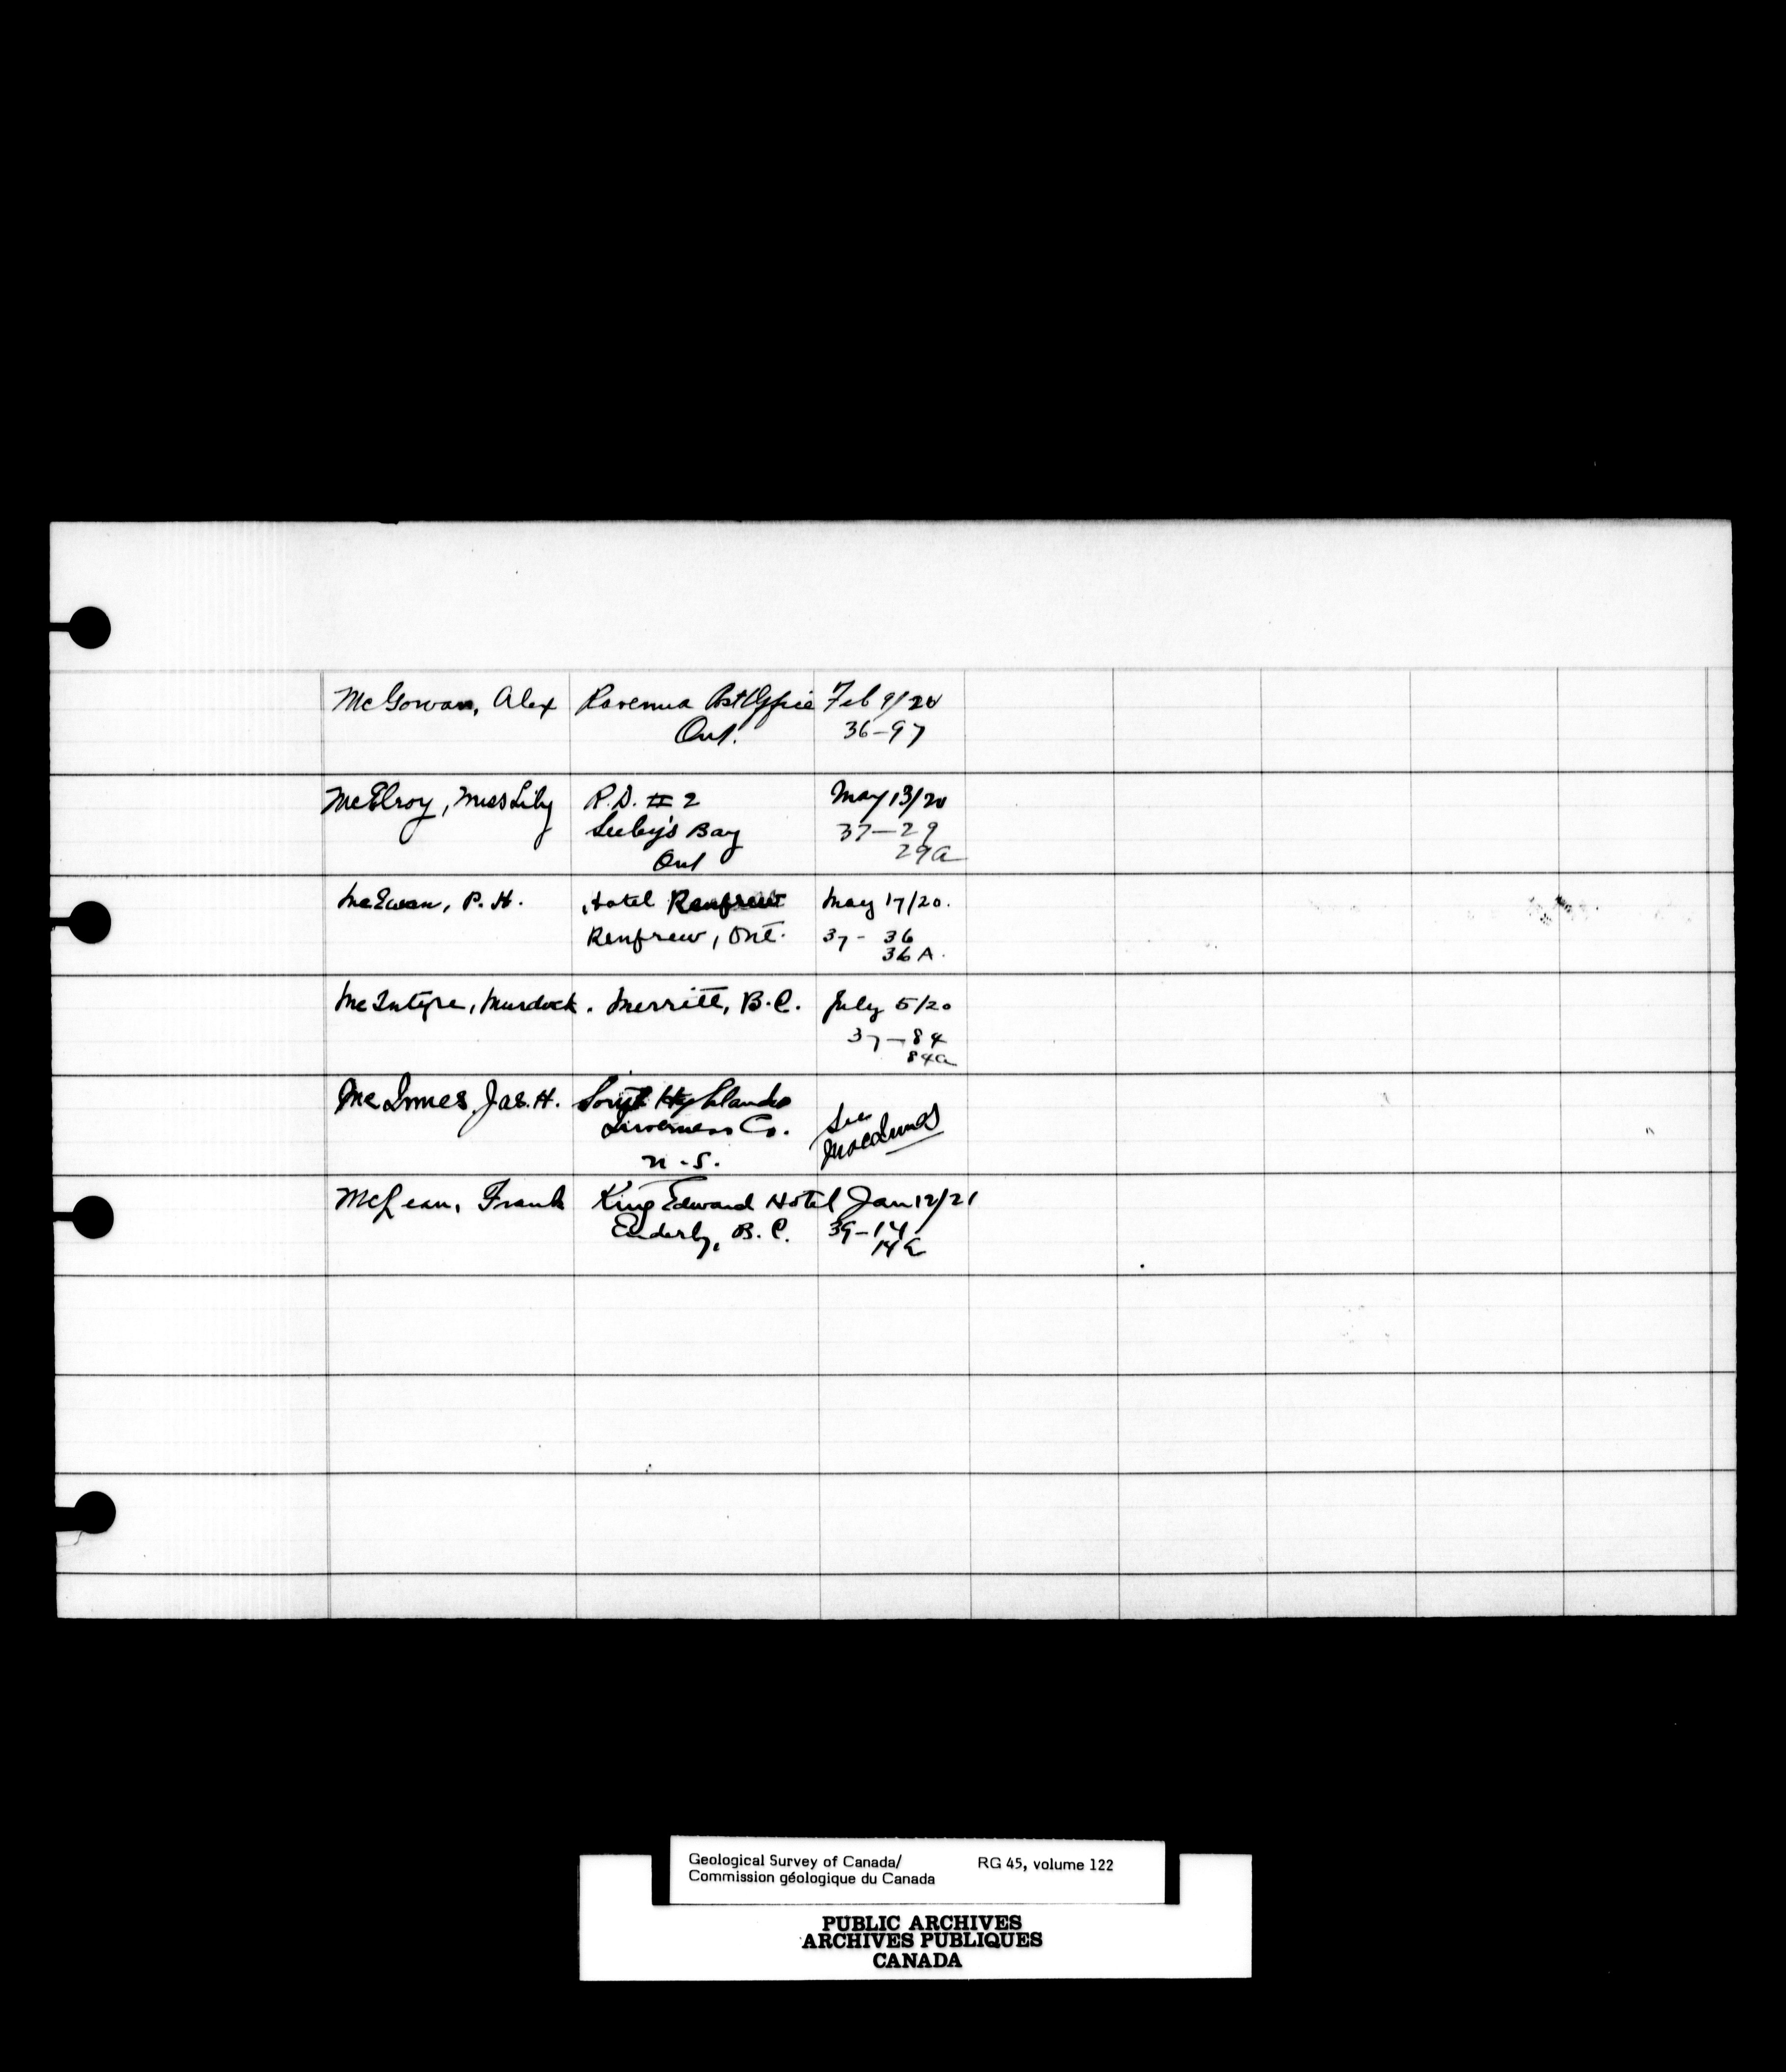 McGowan, Alex Ravenna Post Office Feb 9/20
Ont. 36-97
McElroy, Miss Lily R.D. # 2 May 13/20
Seeley's Bay 37-29
Ont 29a
McEwen, P. H. Hotel Renfrew May 17/20.
Renfrew, Ont. 37- 36
36 A.
McIntyre, Murdock. Merritt, B.C. July 5/20
37-84
84a
McInnes Jas. H. South Highlands
Inverness Co. See
N.S. MacInnes
McLean, Frank King Edward Hotel Jan 12/21
Enderby, B.C. 39-14
14a
Geological Survey of Canada/ RG 45, volume 122
Commission géologique du Canada
PUBLIC ARCHIVES
ARCHIVES PUBLIQUES
CANADA